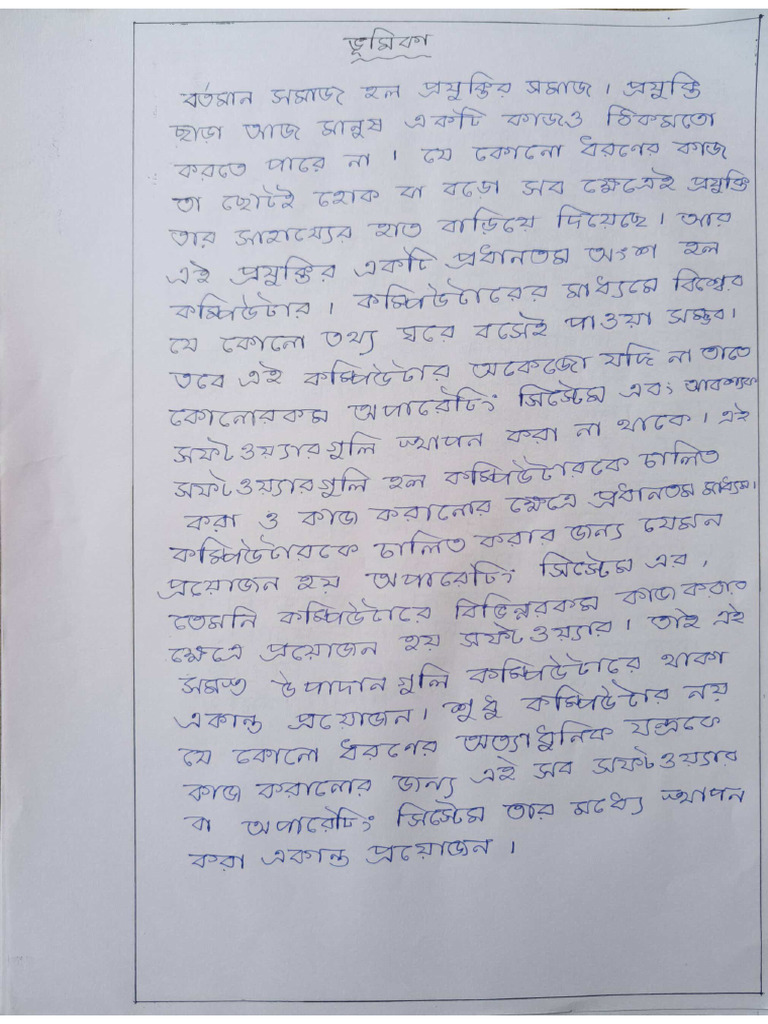 ভূমিকা
বর্তমান সমাজ হল প্রযুক্তির সমাজ। প্রযুক্তি
ছাড়া আজ মানুষ একটি কাজও ঠিকমতো
করতে পারে না। যে কোনো ধরণের কাজ
তা ছোটই হোক বা বড়ো সব ক্ষেত্রেই প্রযুক্তি
তার সাহায্যের হাত বাড়িয়ে দিয়েছে। আর
এই প্রযুক্তির একটি প্রধানতম অংশ হল
কম্পিউটার। কম্পিউটারের মাধ্যমে বিশ্বের
যে কোনো তথ্য ঘরে বসেই পাওয়া সম্ভব।
তবে এই কম্পিউটার অকেজো যদি না তাতে
কোনোরকম অপারেটিং সিস্টেম এবং আবশ্যক
সফটওয়্যারগুলি স্থাপন করা না থাকে। এই
সফটওয়্যারগুলি হল কম্পিউটারকে চালিত
করা ও কাজ করানোর ক্ষেত্রে প্রধানতম মাধ্যম।
কম্পিউটারকে চালিত করার জন্য যেমন
প্রয়োজন হয় অপারেটিং সিস্টেম এর,
তেমনি কম্পিউটারে বিভিন্নরকম কাজ করার
ক্ষেত্রে প্রয়োজন হয় সফটওয়্যার। তাই এই
সমস্ত উপাদানগুলি কম্পিউটারে থাকা
একান্ত প্রয়োজন। শুধু কম্পিউটার নয়
যে কোনো ধরণের অত্যাধুনিক যন্ত্রকে
কাজ করানোর জন্য এই সব সফটওয়্যার
বা অপারেটিং সিস্টেম তার মধ্যে স্থাপন
করা একান্ত প্রয়োজন।